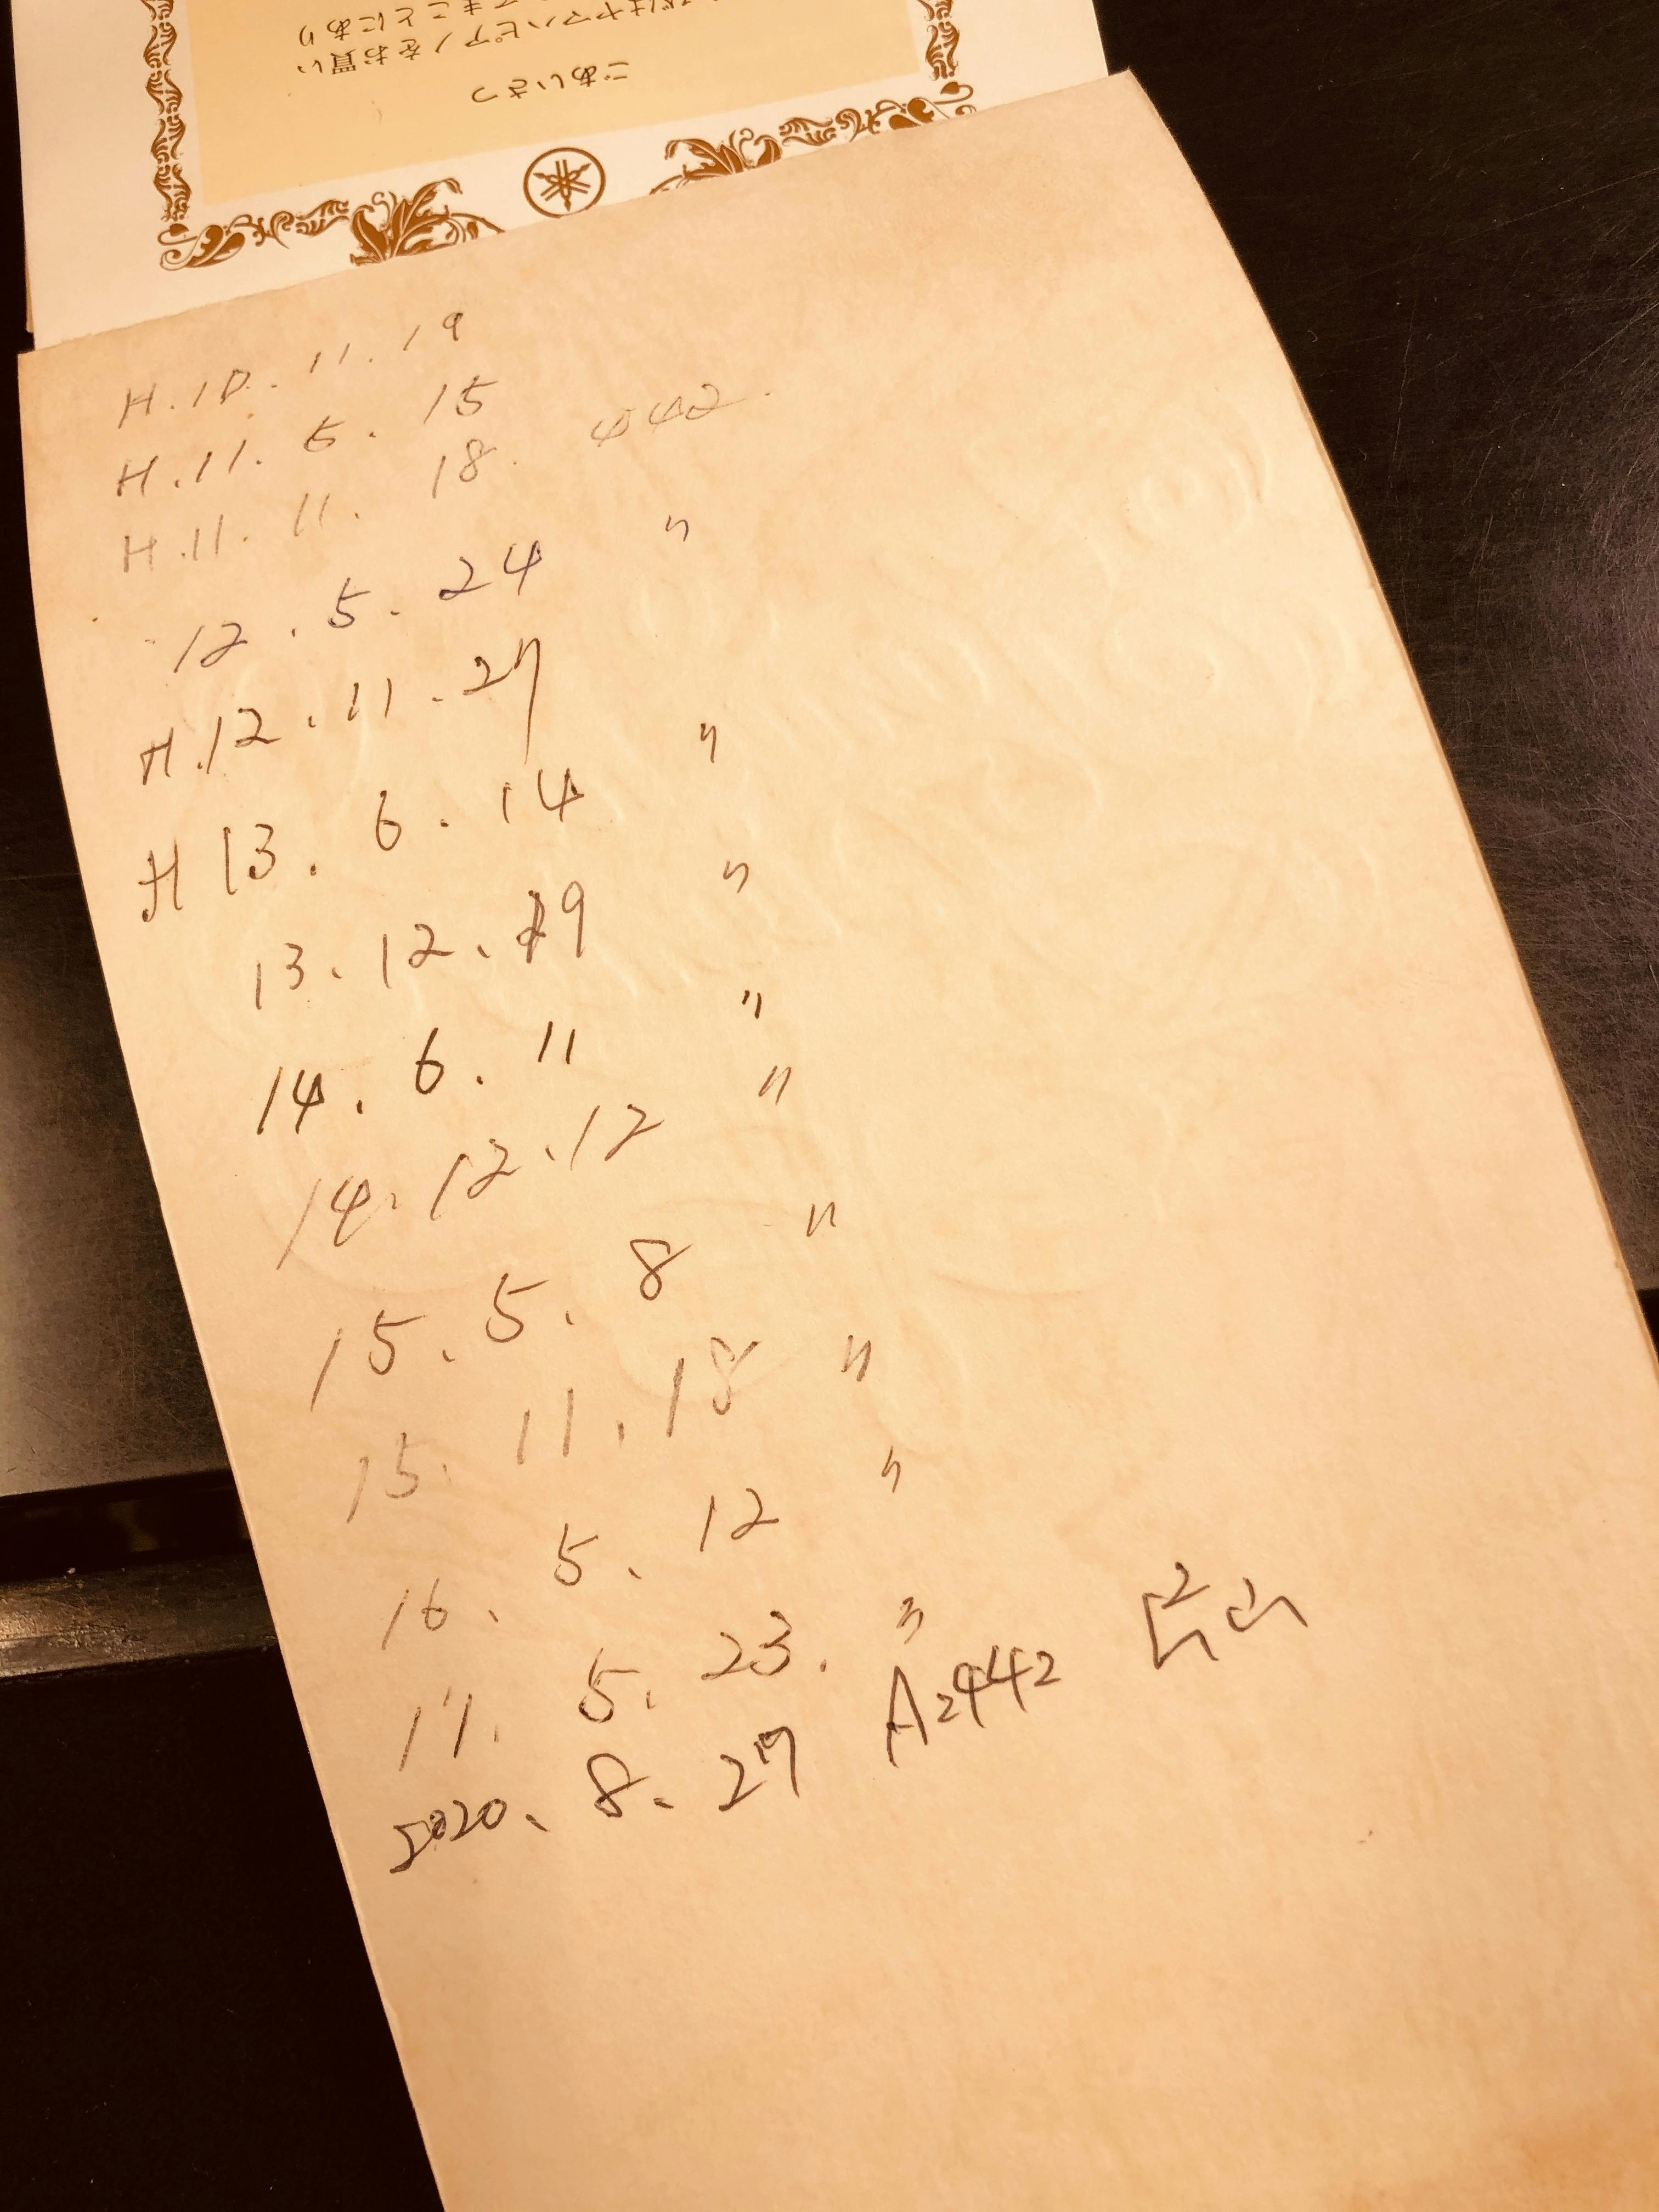 ごあいさつ
はヤマハピアノをお買い
まことにあり
H.10.11.19
H.11.5.15
H.11.11.18. 442.
12.5.24 〃
H.12.11.27
H13.6.14 〃
13.12.19 〃
14.6.11 〃
14.12.12 〃
15.5.8 〃
15.11.18 〃
16.5.12 〃
17.5.23. 〃
2020.8.27 A=442